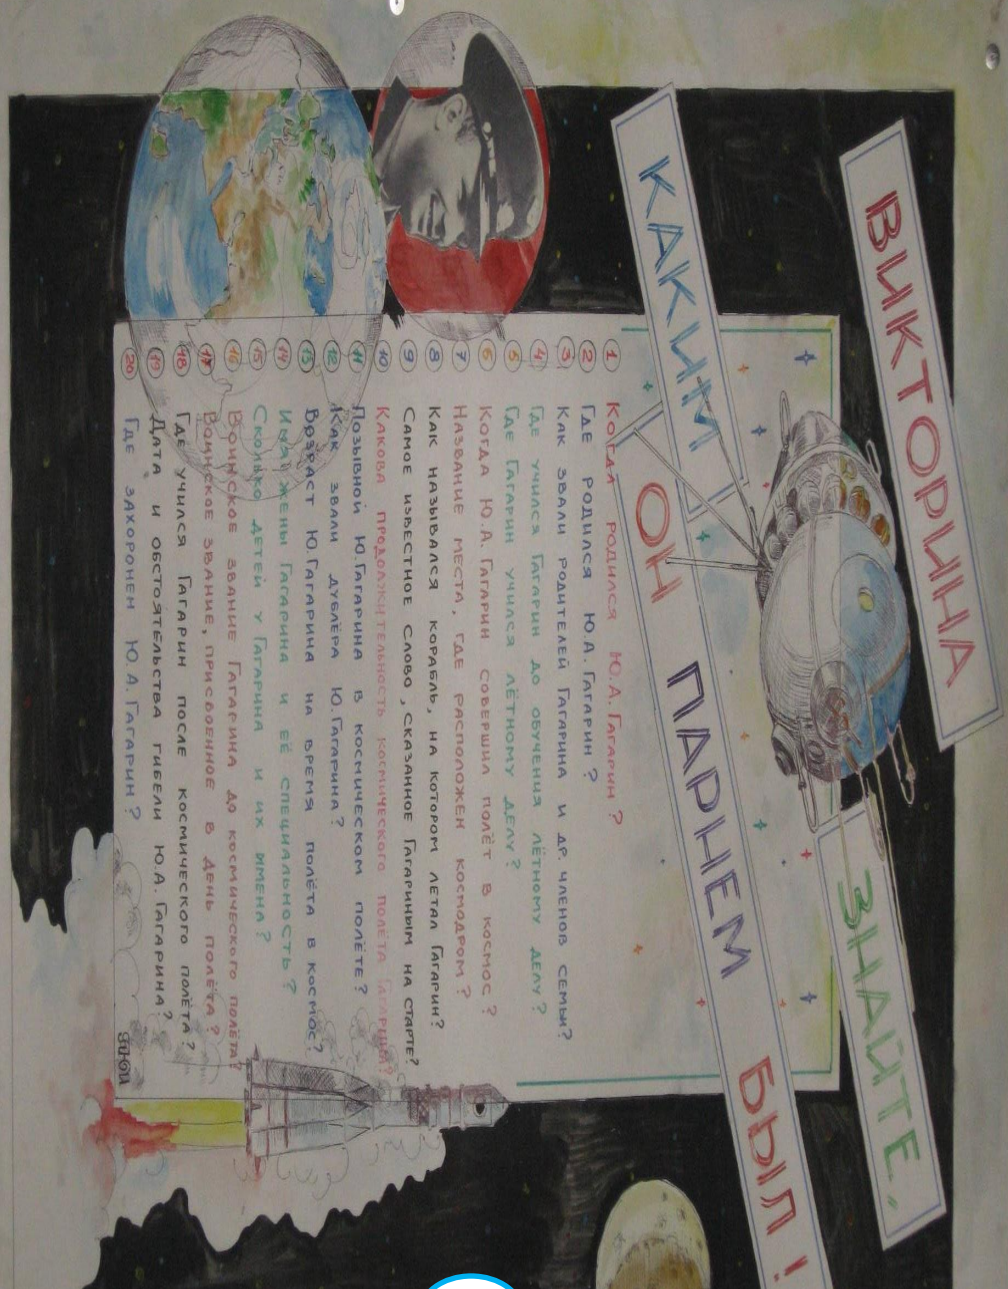 ВИКТОРИНА
ЗНАЙТЕ,
КАКИМ ОН ПАРНЕМ БЫЛ!
1 КОГДА РОДИЛСЯ Ю.А. ГАГАРИН?
2 ГДЕ РОДИЛСЯ Ю.А. ГАГАРИН?
3 КАК ЗВАЛИ РОДИТЕЛЕЙ ГАГАРИНА И ДР. ЧЛЕНОВ СЕМЬИ?
4 ГДЕ УЧИЛСЯ ГАГАРИН ДО ОБУЧЕНИЯ ЛЁТНОМУ ДЕЛУ?
5 ГДЕ ГАГАРИН УЧИЛСЯ ЛЁТНОМУ ДЕЛУ?
6 КОГДА Ю.А. ГАГАРИН СОВЕРШИЛ ПОЛЁТ В КОСМОС?
7 НАЗВАНИЕ МЕСТА, ГДЕ РАСПОЛОЖЕН КОСМОДРОМ?
8 КАК НАЗЫВАЛСЯ КОРАБЛЬ, НА КОТОРОМ ЛЕТАЛ ГАГАРИН?
9 САМОЕ ИЗВЕСТНОЕ СЛОВО, СКАЗАННОЕ ГАГАРИНЫМ НА СТАРТЕ?
10 КАКОВА ПРОДОЛЖИТЕЛЬНОСТЬ КОСМИЧЕСКОГО ПОЛЁТА ГАГАРИНА?
11 ПОЗЫВНОЙ Ю.ГАГАРИНА В КОСМИЧЕСКОМ ПОЛЁТЕ?
12 КАК ЗВАЛИ ДУБЛЁРА Ю.ГАГАРИНА?
13 ВОЗРАСТ Ю.ГАГАРИНА НА ВРЕМЯ ПОЛЁТА В КОСМОС?
14 ИМЯ ЖЕНЫ ГАГАРИНА И ЕЁ СПЕЦИАЛЬНОСТЬ?
15 СКОЛЬКО ДЕТЕЙ У ГАГАРИНА И ИХ ИМЕНА?
16 ВОИНСКОЕ ЗВАНИЕ ГАГАРИНА ДО КОСМИЧЕСКОГО ПОЛЁТА?
17 ВОИНСКОЕ ЗВАНИЕ, ПРИСВОЕННОЕ В ДЕНЬ ПОЛЁТА?
18 ГДЕ УЧИЛСЯ ГАГАРИН ПОСЛЕ КОСМИЧЕСКОГО ПОЛЁТА?
19 ДАТА И ОБСТОЯТЕЛЬСТВА ГИБЕЛИ Ю.А. ГАГАРИНА?
20 ГДЕ ЗАХОРОНЕН Ю.А. ГАГАРИН?